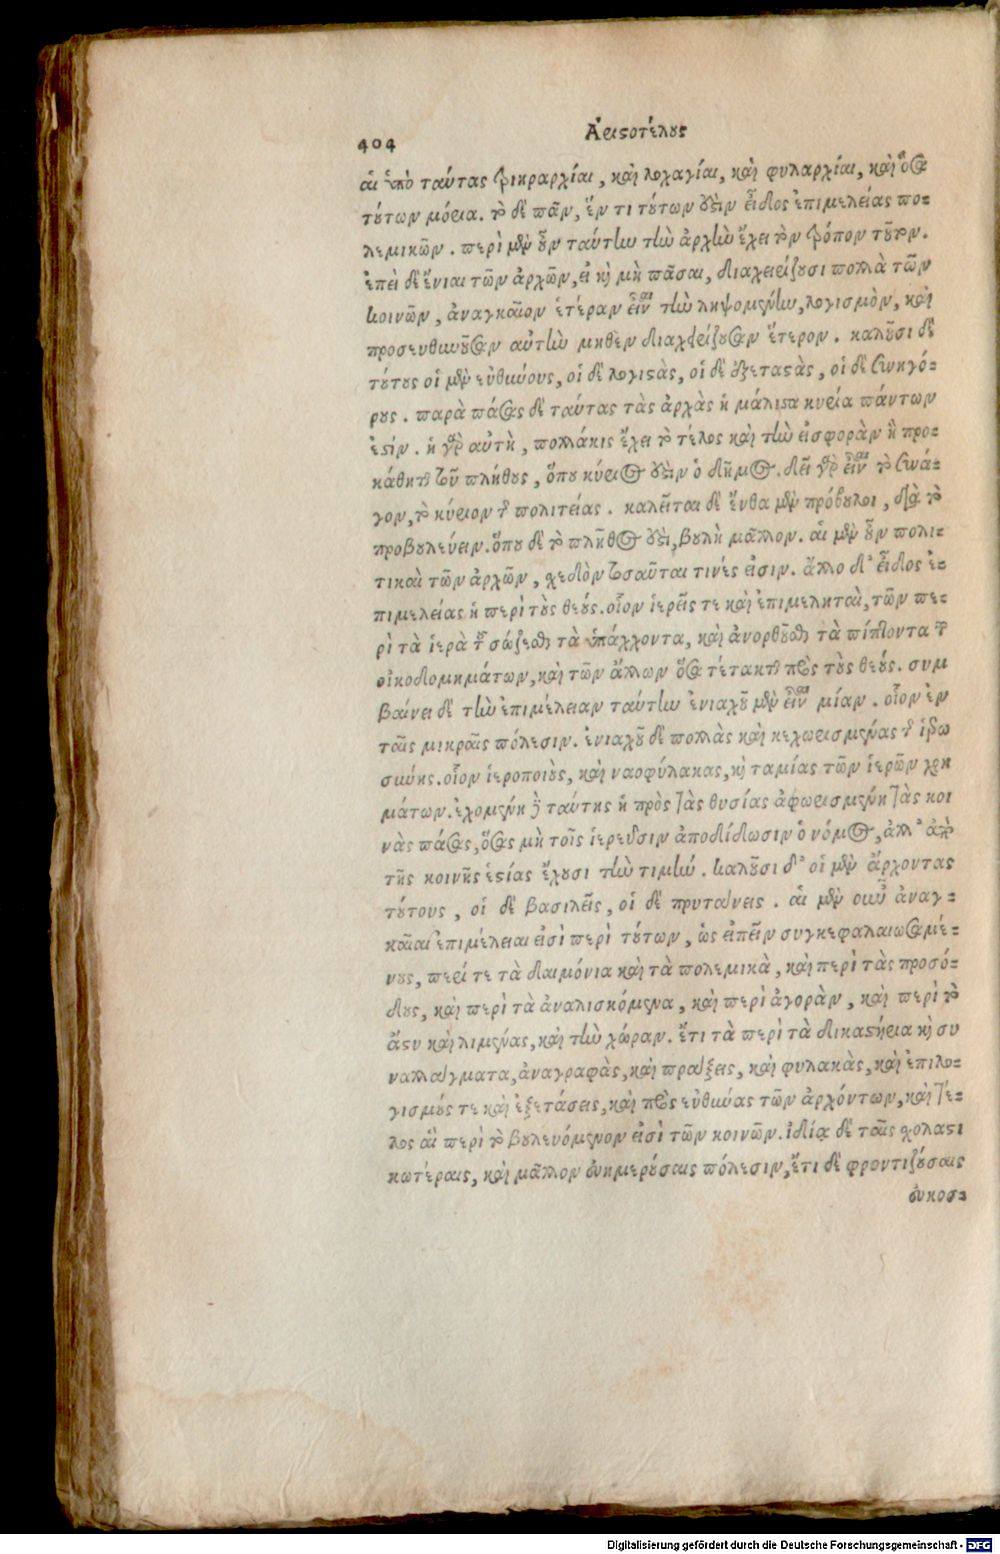 404
Ἀριστοτέλους
αἱ ὑπὸ ταύτας τριηραρχίαι, καὶ λοχαγίαι, καὶ φυλαρχίαι, καὶ ὅσα
τούτων μόρια. τὸ δὲ πᾶν, ἕν τι τούτων ἐστὶν εἶδος ἐπιμελείας πο-
λεμικῶν. περὶ μὲν οὖν ταύτην τὴν ἀρχὴν ἔχει τὸν τρόπον τοῦτον.
ἐπεὶ δὲ ἔνιαι τῶν ἀρχῶν, εἰ καὶ μὴ πᾶσαι, διαχειρίζουσι πολλὰ τῶν
κοινῶν, ἀναγκαῖον ἑτέραν εἶναι τὴν ληψομένην, λογισμὸν, καὶ
προσευθυνοῦσαν αὐτὴν μηθὲν διαχειρίζουσαν ἕτερον. καλοῦσι δὲ
τούτους οἱ μὲν εὐθύνους, οἱ δὲ λογιστὰς, οἱ δὲ ἐξεταστὰς, οἱ δὲ συνηγό-
ρους. παρὰ πάσας δὲ ταύτας τὰς ἀρχὰς ἡ μάλιστα κυρία πάντων
ἐστίν. ἡ γὰρ αὐτὴ, πολλάκις ἔχει τὸ τέλος καὶ τὴν εἰσφορὰν ἢ προ-
κάθηται τοῦ πλήθους, ὅπου κύριός ἐστιν ὁ δῆμος. δεῖ γὰρ εἶναι τὸ συνά-
γον, τὸ κύριον τῆς πολιτείας. καλεῖται δὲ ἔνθα μὲν πρόβουλοι, διὰ τὸ
προβουλεύειν. ὅπου δὲ τὸ πλῆθός ἐστι, βουλὴ μᾶλλον. αἱ μὲν οὖν πολι-
τικαὶ τῶν ἀρχῶν, σχεδὸν τοσαῦται τινές εἰσιν. ἄλλο δ' εἶδος ἐ-
πιμελείας ἡ περὶ τοὺς θεούς. οἷον ἱερεῖς τε καὶ ἐπιμεληταὶ, τῶν πε-
ρὶ τὰ ἱερὰ τοῦ σώζεσθαι τὰ ὑπάρχοντα, καὶ ἀνορθοῦσθαι τὰ πίπτοντα τῶν
οἰκοδομημάτων, καὶ τῶν ἄλλων ὅσα τέτακται πρὸς τοὺς θεούς. συμ
βαίνει δὲ τὴν ἐπιμέλειαν ταύτην ἐνιαχοῦ μὲν εἶναι μίαν. οἷον ἐν
ταῖς μικραῖς πόλεσιν. ἐνιαχοῦ δὲ πολλὰς καὶ κεχωρισμένας τῆς ἱερω
σύνης. οἷον ἱεροποιοὺς, καὶ ναοφύλακας, καὶ ταμίας τῶν ἱερῶν χρη
μάτων. ἐχομένη δὲ ταύτης ἡ πρὸς τὰς θυσίας ἀφωρισμένη τὰς κοι
νὰς πάσας, ὅσας μὴ τοῖς ἱερεῦσιν ἀποδίδωσιν ὁ νόμος, ἀλλ' ἀπὸ
τῆς κοινῆς ἑστίας ἔχουσι τὴν τιμήν. καλοῦσι δ' οἱ μὲν ἄρχοντας
τούτους, οἱ δὲ βασιλεῖς, οἱ δὲ πρυτάνεις. αἱ μὲν οὖν ἀναγ-
καῖαι ἐπιμέλειαι εἰσὶ περὶ τούτων, ὡς εἰπεῖν συγκεφαλαιωσαμέ-
νους, περί τε τὰ δαιμόνια καὶ τὰ πολεμικὰ, καὶ περὶ τὰς προσό-
δους, καὶ περὶ τὰ ἀναλισκόμενα, καὶ περὶ ἀγορὰν, καὶ περὶ τὸ
ἄστυ καὶ λιμένας, καὶ τὴν χώραν. ἔτι τὰ περὶ τὰ δικαστήρια καὶ συ
ναλλάγματα, ἀναγραφὰς, καὶ πράξεις, καὶ φυλακὰς, καὶ ἐπιλο-
γισμούς τε καὶ ἐξετάσεις, καὶ πρὸς εὐθύνας τῶν ἀρχόντων, καὶ τέ-
λος αἱ περὶ τὸ βουλευόμενον εἰσὶ τῶν κοινῶν. ἰδίᾳ δὲ ταῖς σχολαστι
κωτέραις, καὶ μᾶλλον εὐημερούσαις πόλεσιν, ἔτι δὲ φροντιζούσαις
εὐκοσ-
Digitalisierung gefördert durch die Deutsche Forschungsgemeinschaft - DFG